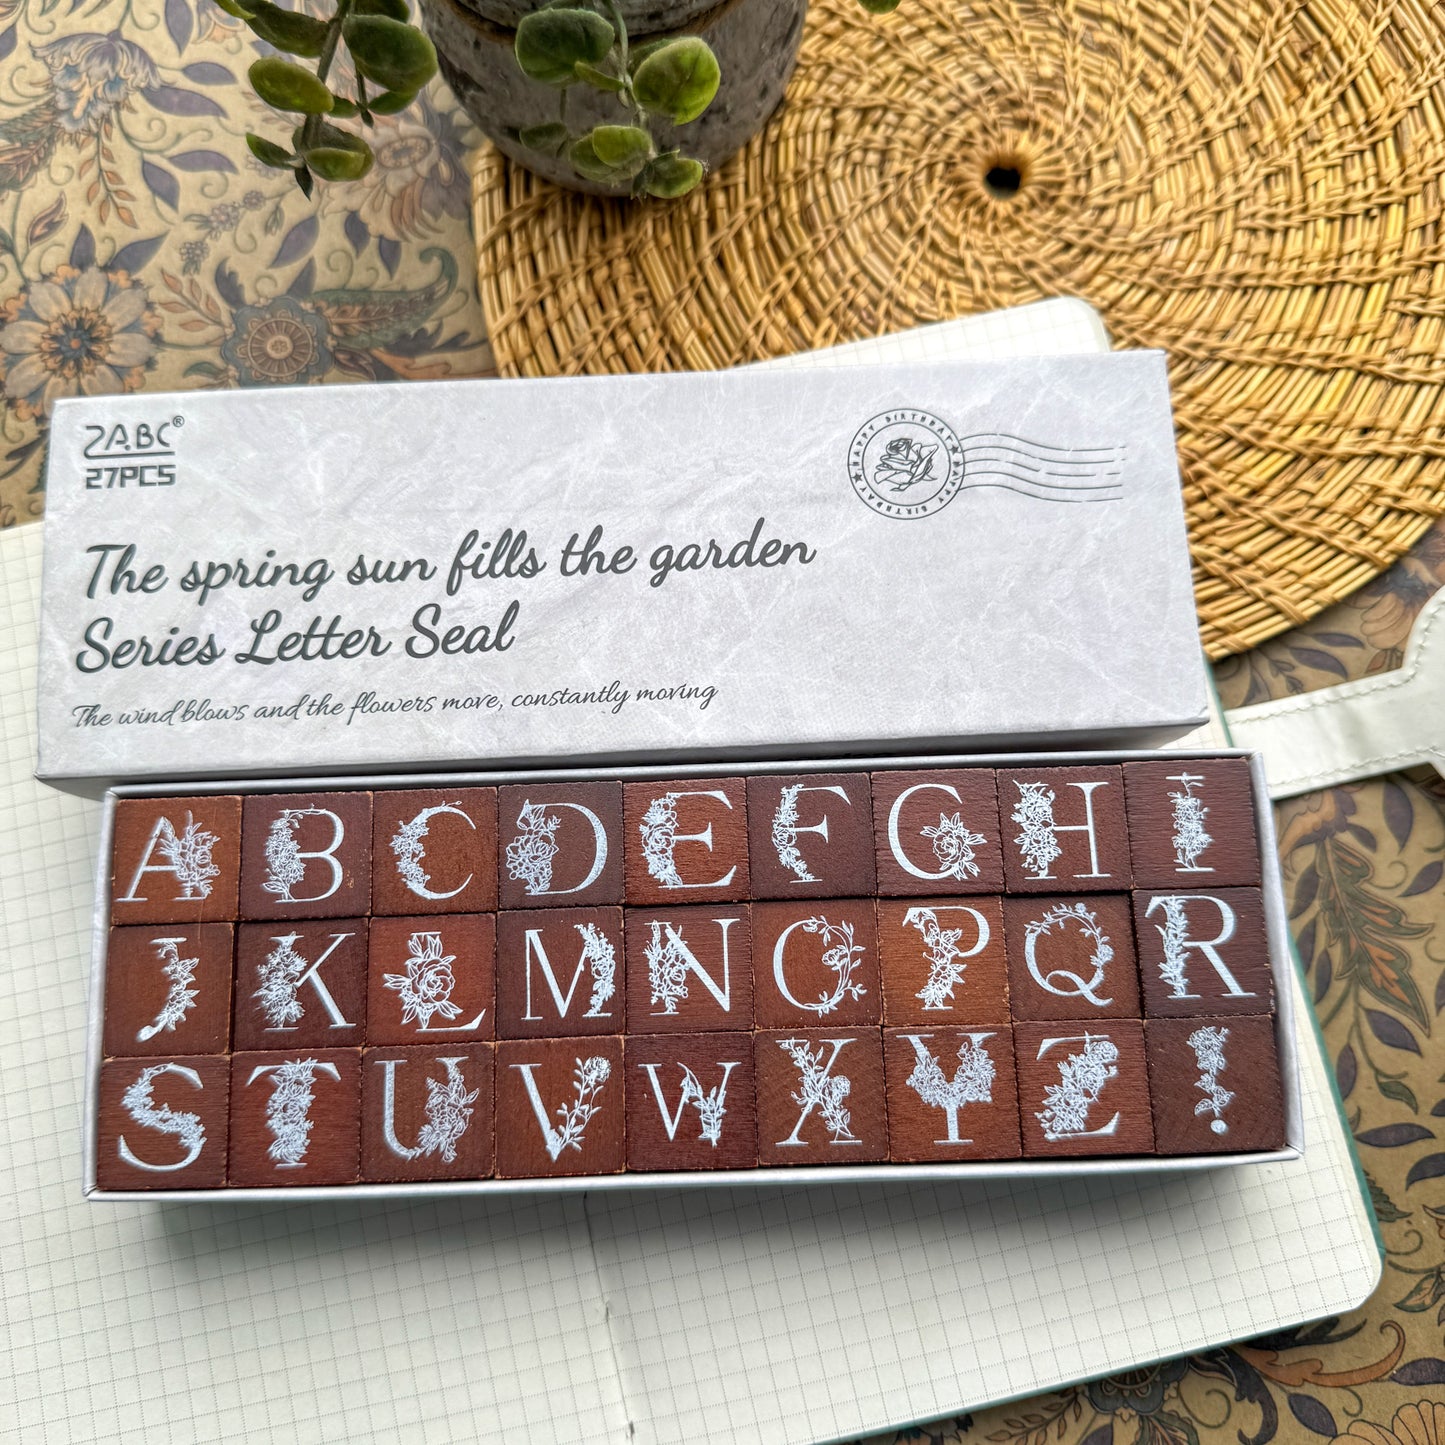 2ABC®
27PCS
HAPPY BIRTHDAY ★ HAPPY BIRTHDAY ★
The spring sun fills the garden
Series Letter Seal
The wind blows and the flowers move, constantly moving
A B C D E F G H I
J K L M N O P Q R
S T U V W X Y Z !